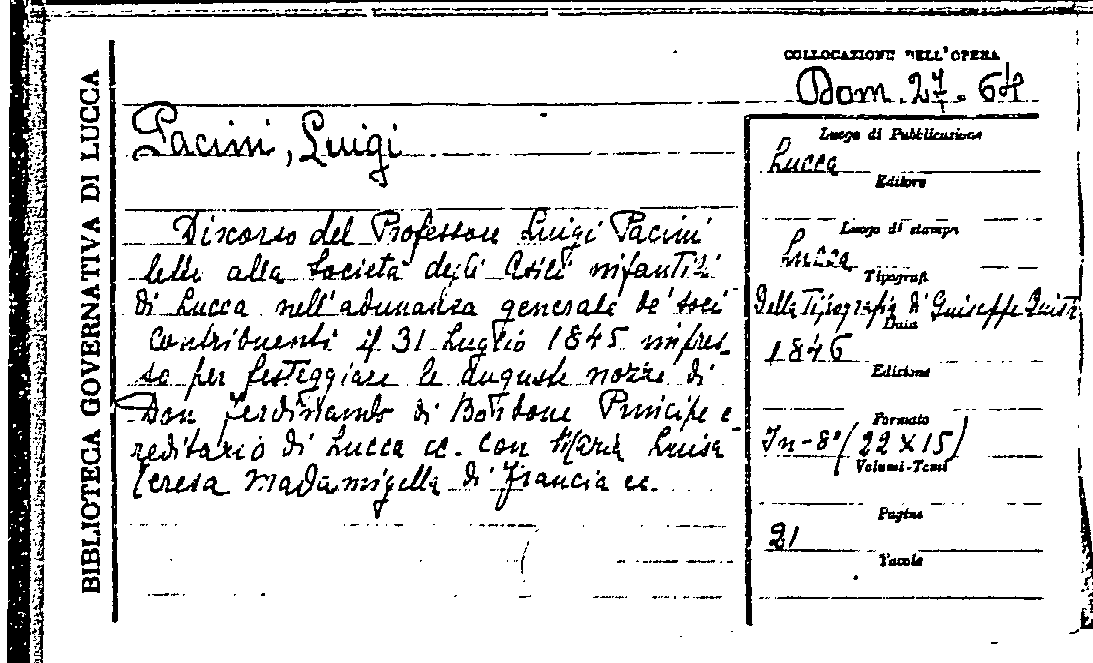 BIBLIOTECA GOVERNATIVA DI LUCCA
COLLOCAZIONE DELL'OPERA
Dom. 27. 64
Pacini, Luigi
Discorso del Professore Luigi Pacini
letto alla Società degli Asili infantili
di Lucca nell'adunanza generale de' soci
contribuenti il 31 Luglio 1845 impres-
so per festeggiare le auguste nozze di
Don Ferdinando di Borbone Principe e-
reditario di Lucca ec. con Maria Luisa
Teresa Madamigella di Francia ec.
Luogo di Pubblicazione
Lucca
Editore
Luogo di stampa
Lucca
Tipografi
Della Tipografia di Guiseppe Giusti
Data
1846
Edizione
Formato
In-8° (22 x 15)
Volumi-Tomi
Pagine
21
Tavole